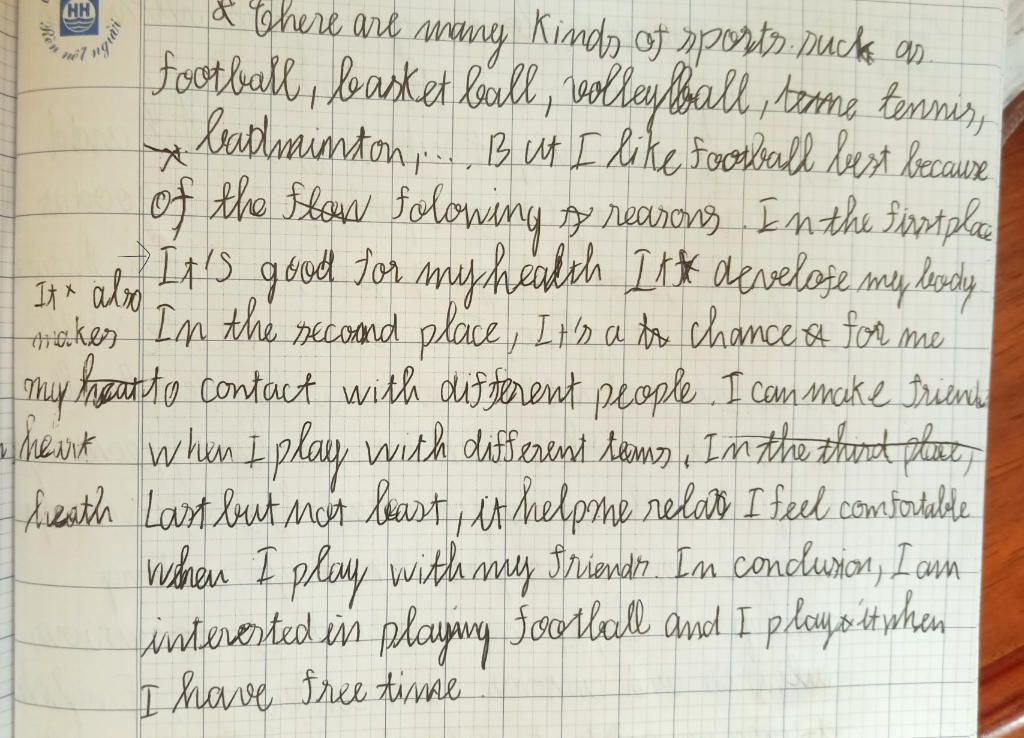 HH
Rèn nét người
& There are many Kinds of sports. such as
football, basket ball, volleyball, tenme tennis,
badmimton,... But I like football best because
of the flow folowing reasons. In the first place
It's good for my health It develofe my body
It also
makes
my heart
heart
heath
In the second place, It's a to chance for me
to contact with different people. I can make friends
when I play with different teams. In the third place,
Last but not least, it helpme relax I feel comfortable
when I play with my friends. In conclusion, I am
interested in playing football and I play it when
I have free time.